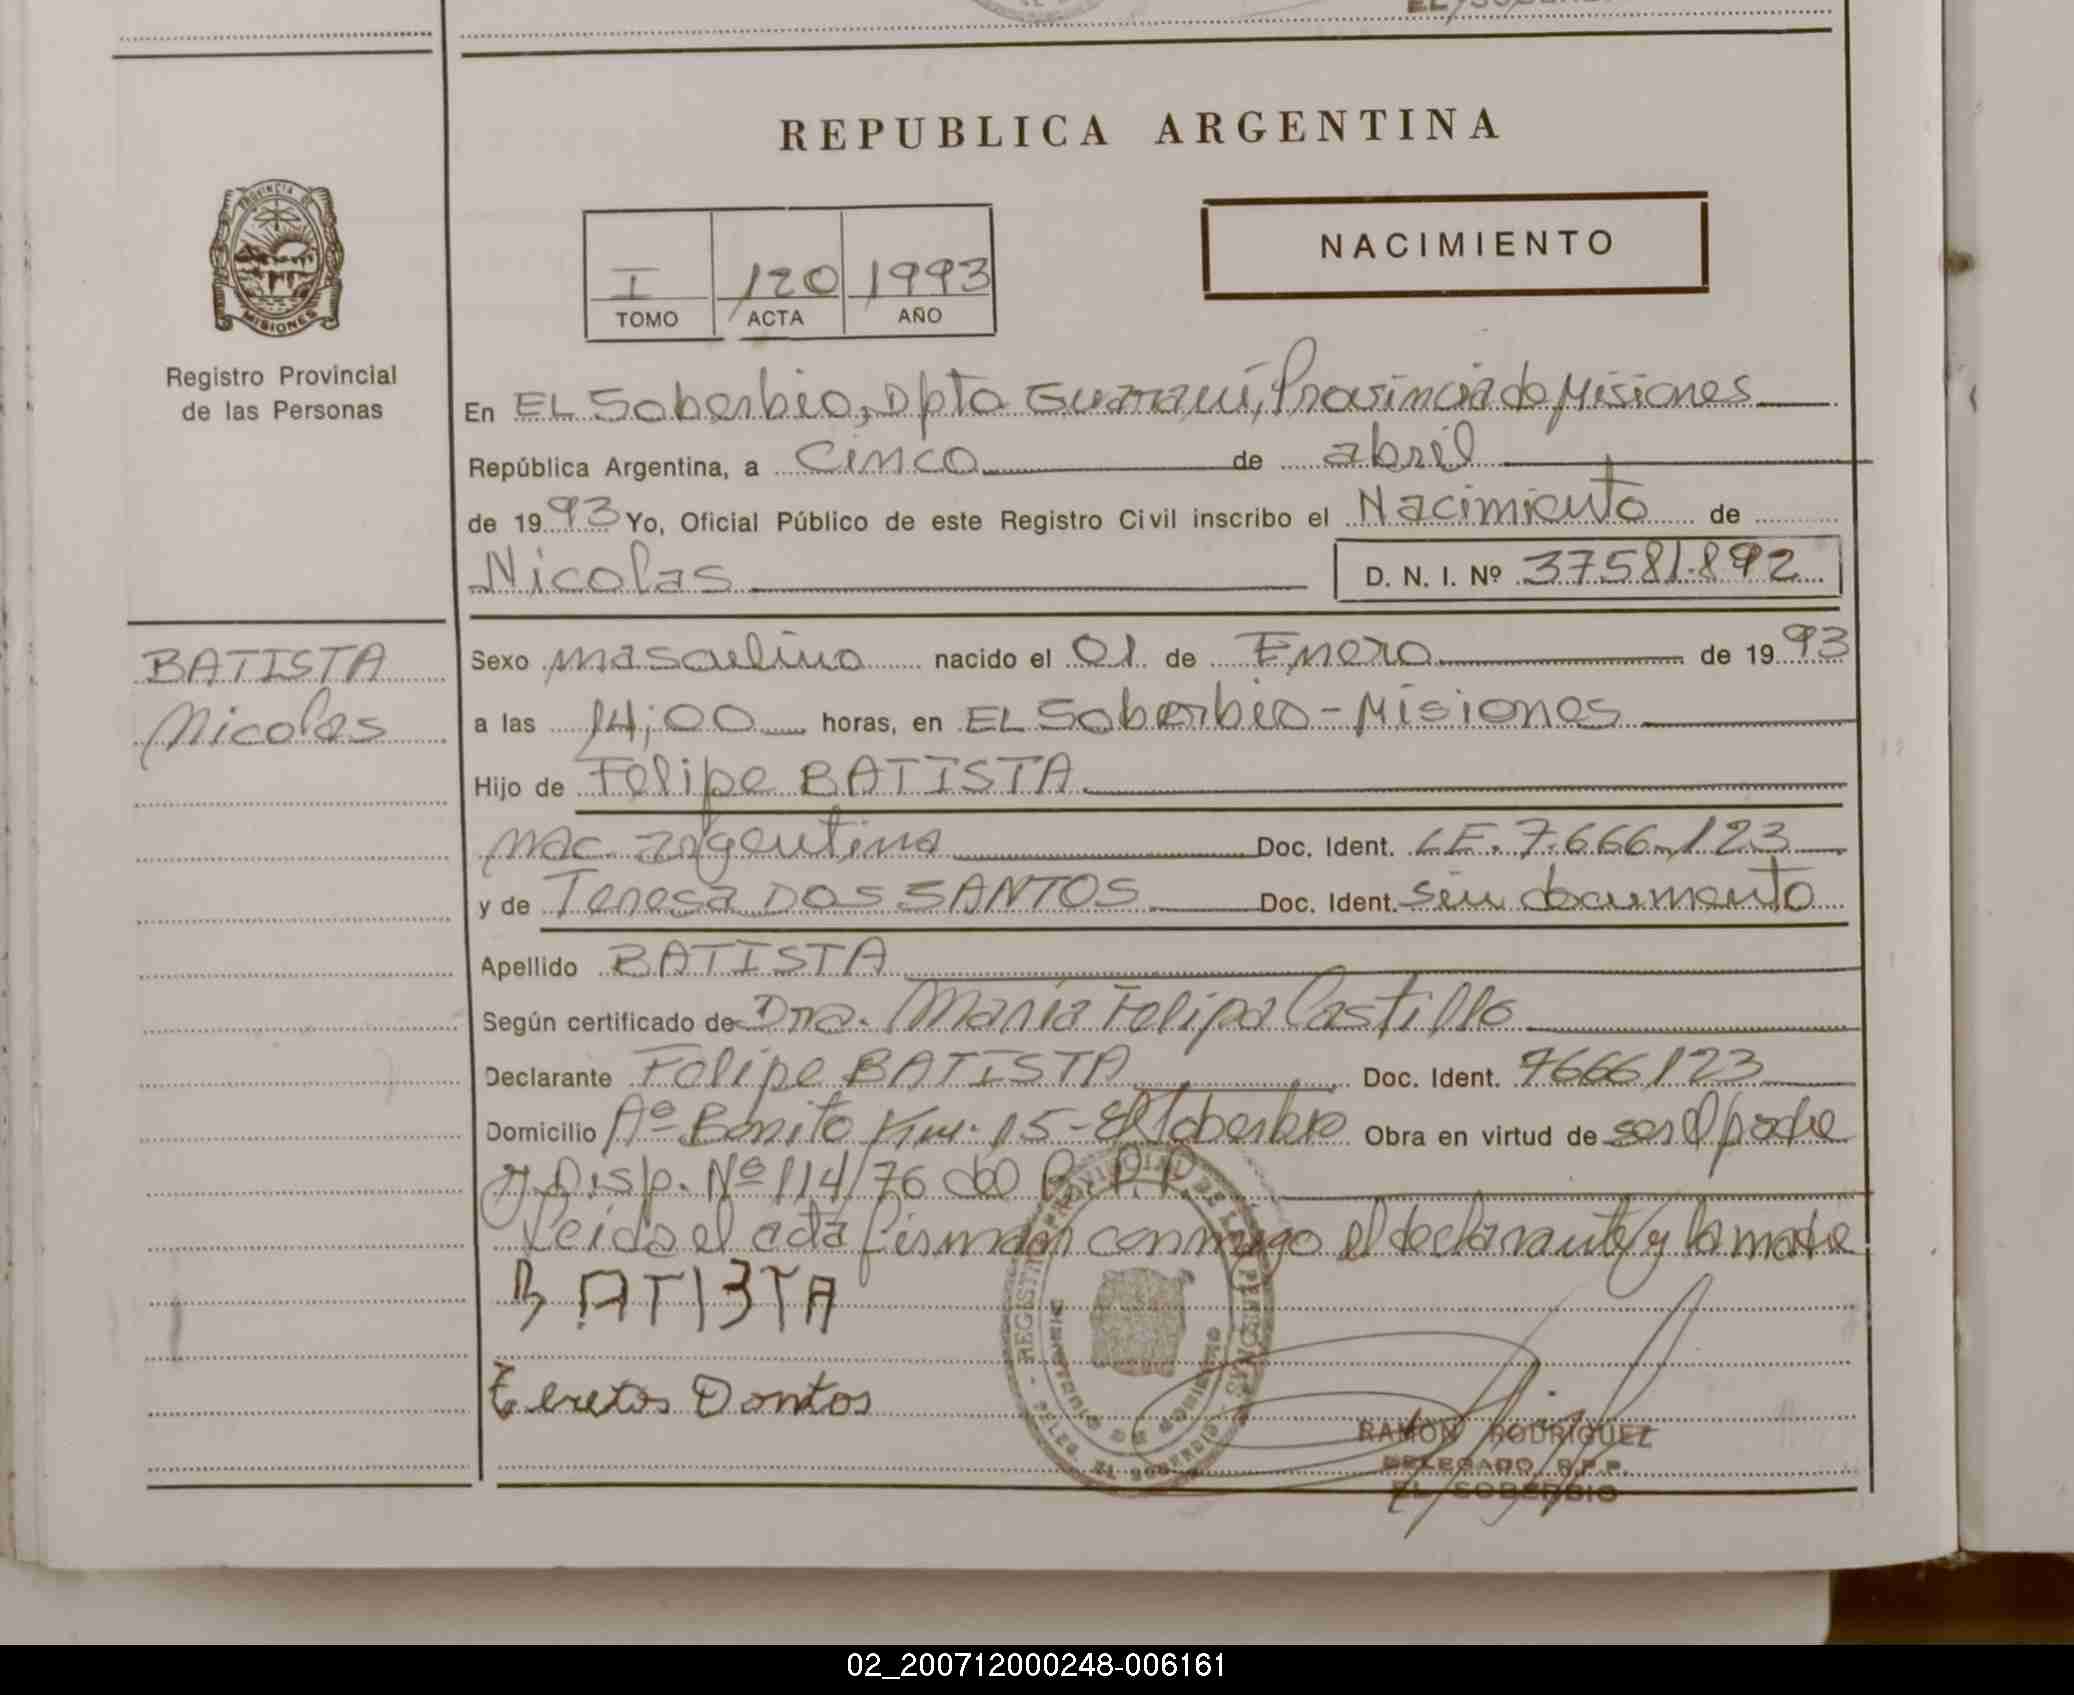 REPUBLICA ARGENTINA
PROVINCIA DE
MISIONES
Registro Provincial
de las Personas
I 120 1993
TOMO ACTA AÑO
NACIMIENTO
En EL Soberbio, Dpto Guaraní, Provincia de Misiones
República Argentina, a cinco de abril
de 1993 Yo, Oficial Público de este Registro Civil inscribo el Nacimiento de
Nicolas D. N. I. Nº 37581.892
BATISTA
Nicolas
Sexo masculino nacido el 01 de Enero de 1993
a las 14;00 horas, en EL Soberbio - Misiones
Hijo de Felipe BATISTA
nac. argentina Doc. Ident. LE. 7.666.123
y de Teresa DOS SANTOS Doc. Ident. sin documento
Apellido BATISTA
Según certificado de Dra. Maria Felipa Castillo
Declarante Felipe BATISTA Doc. Ident. 7666123
Domicilio Aº Bonito Km. 15 - El Soberbio Obra en virtud de ser el padre
y Disp. Nº 114/76 del R.P.P.
Leida el acta firman conmigo el declarante y la madre
BATISTA
REGISTRO PROVINCIAL DE LAS PERSONAS
RAMON RODRIGUEZ
DELEGADO R.P.P.
EL SOBERBIO
02_200712000248-006161